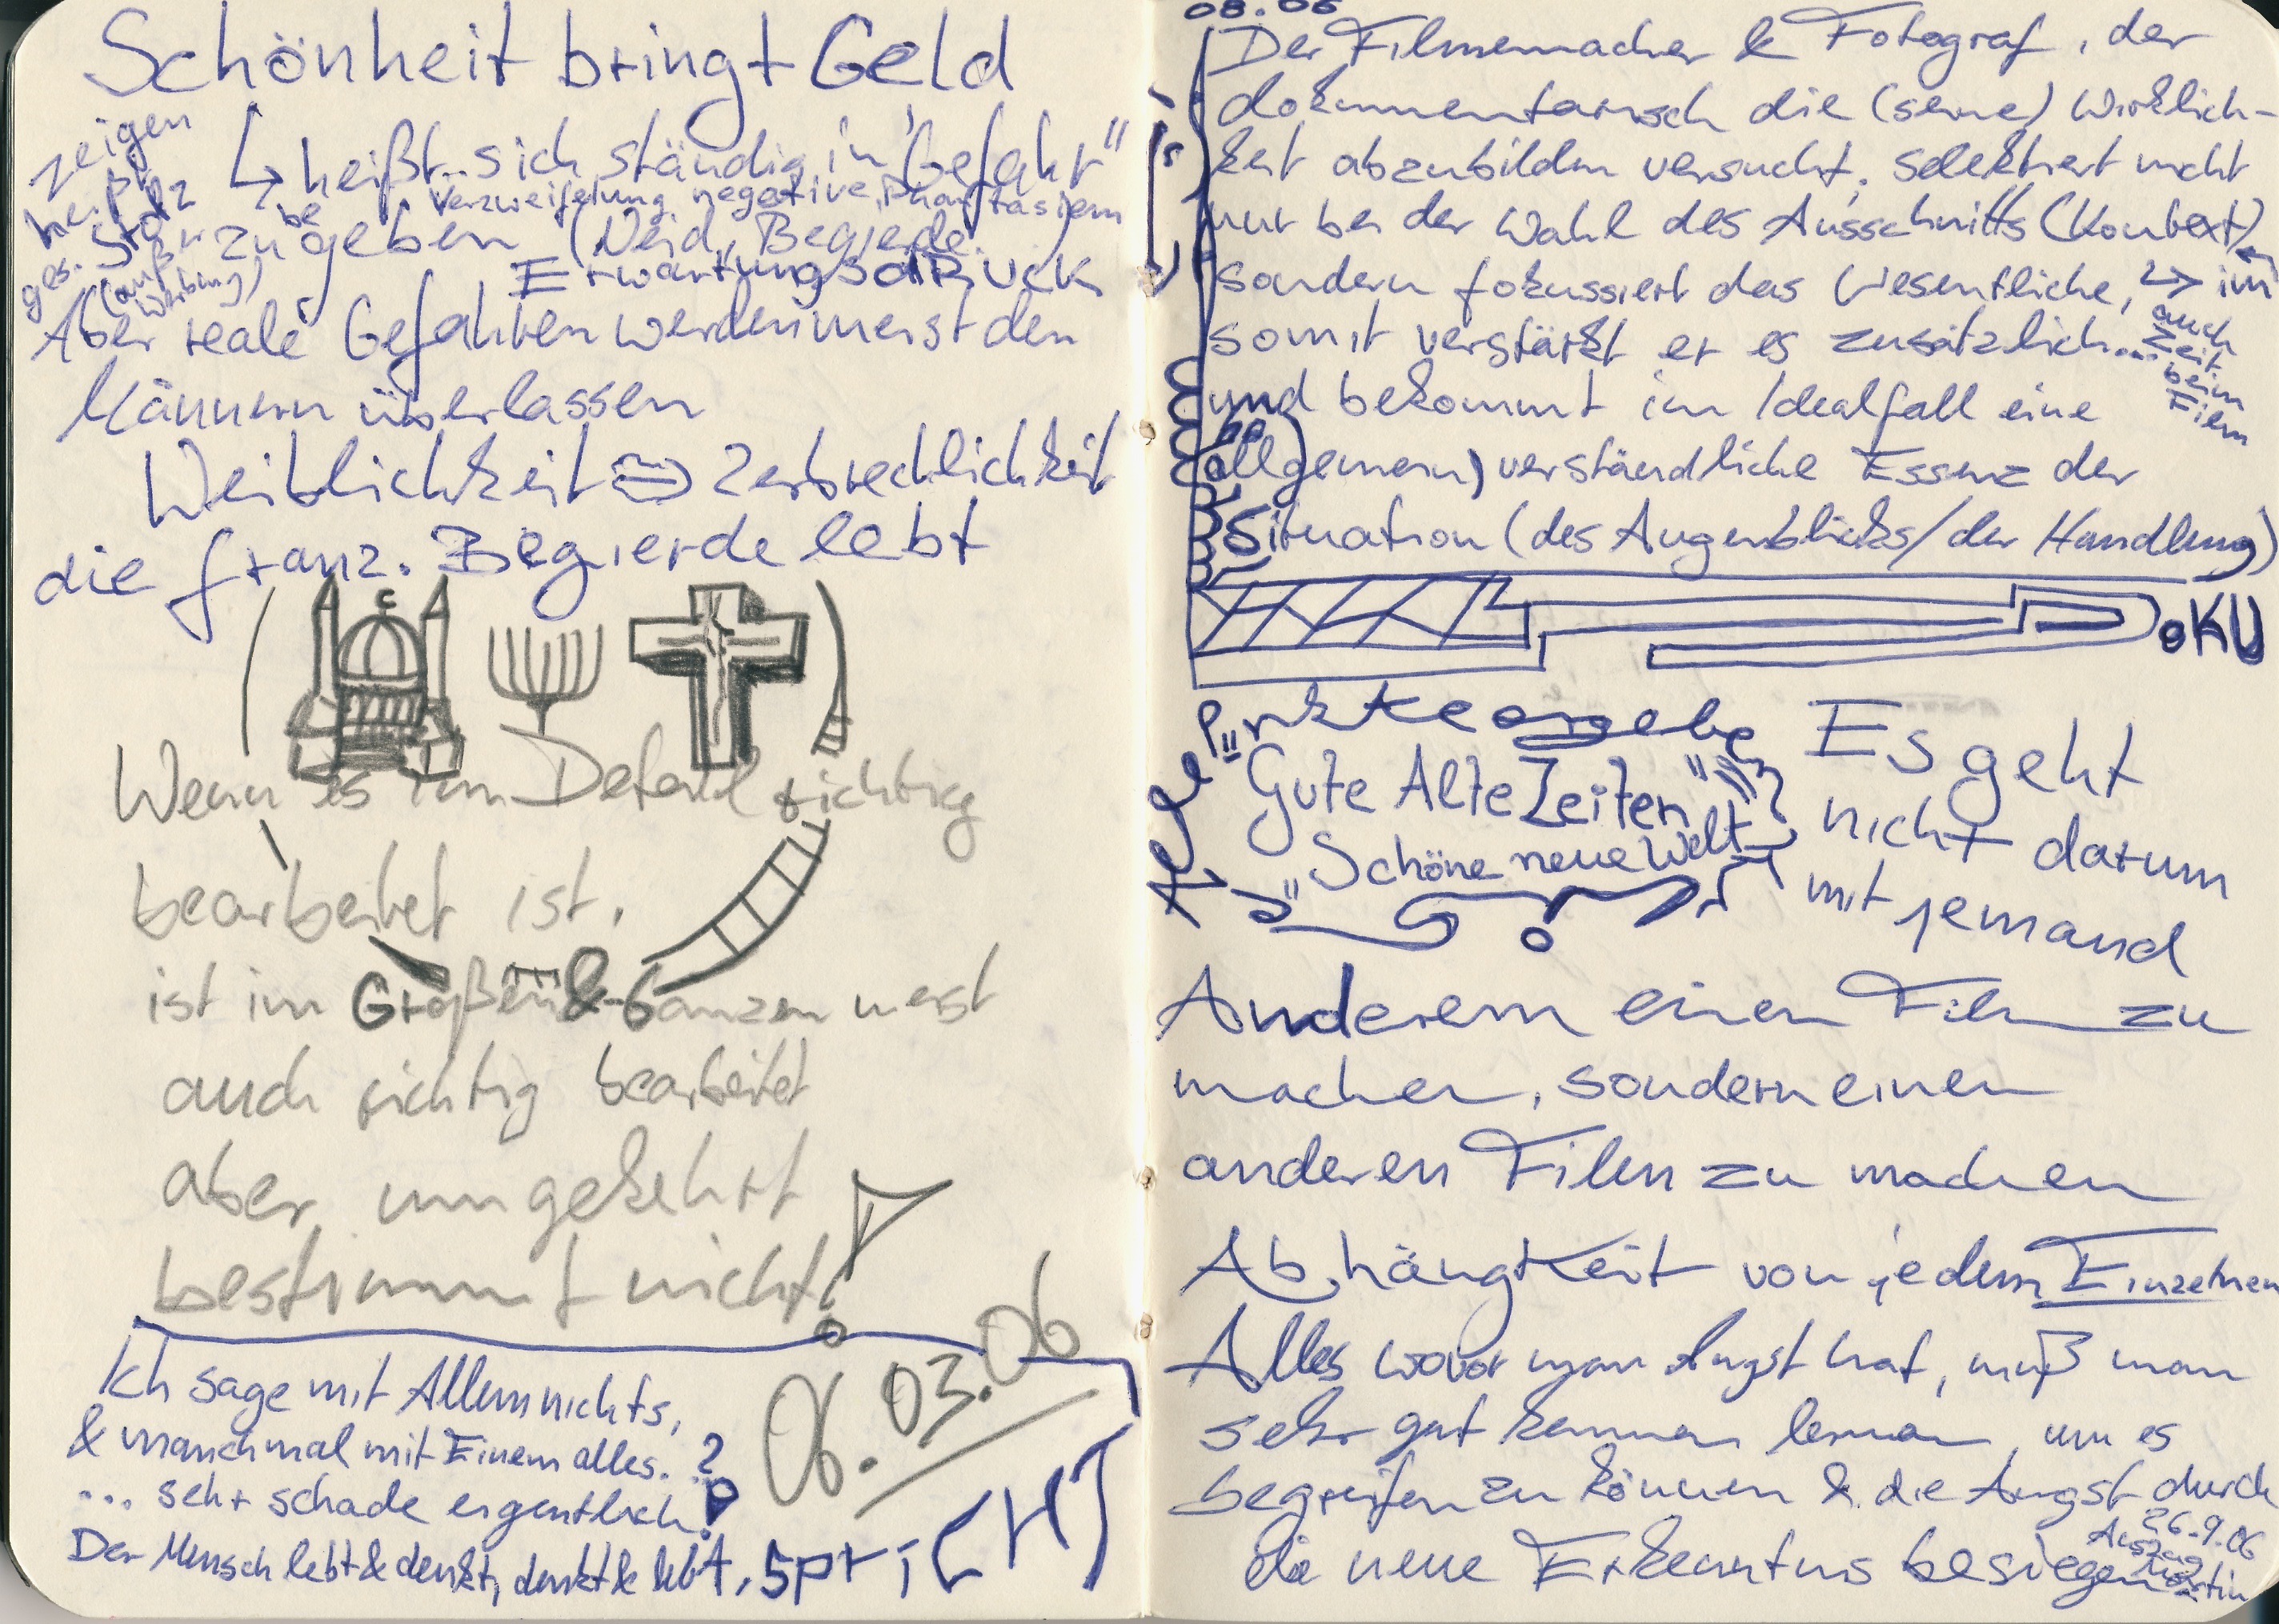 Schönheit bringt Geld
zeigen
heißt
↳ heißt sich ständig in "Gefahr"
Verzweifelung, negative Phantasien
zu begeben (Neid, Begierde,
Erwartungsdruck)
Aber reale Gefahren werden meist den
Männern überlassen
Weiblichkeit ⇔ Zerbrechlichkeit
die franz. Begierde lebt
Wenn es im Detail richtig
bearbeitet ist,
ist im Großen & Ganzen meist
auch richtig bearbeitet
aber umgekehrt
bestimmt nicht!
06.03.06
Ich sage mit Allem nichts,
& manchmal mit Einem alles. ?
... sehr schade eigentlich!
Der Mensch lebt & denkt, denkt & lebt, spricht
08.06
Der Filmemacher & Fotograf, der
dokumentarisch die (seine) Wirklich-
keit abzubilden versucht, selektiert nicht
nur bei der Wahl des Ausschnitts (Kontext)
sondern fokussiert das Wesentliche, ↳ im
somit verstärkt er es zusätzlich...
auch
Zeit
beim
Film
und bekommt im Idealfall eine
(allgemein) verständliche Essenz der
Situation (des Augenblicks/der Handlung)
DOKU
"Gute Alte Zeiten"
"Schöne neue Welt"
Es geht
nicht darum
mit jemand
Anderem einen Film zu
machen, sondern einen
anderen Film zu machen
Abhängkeit von jedem Einzelnen
Alles wovor man Angst hat, muß man
sehr gut kennen lernen, um es
begreifen zu können & die Angst durch
die neue Erkenntnis besiegen
26.9.06
Auszug
Martin